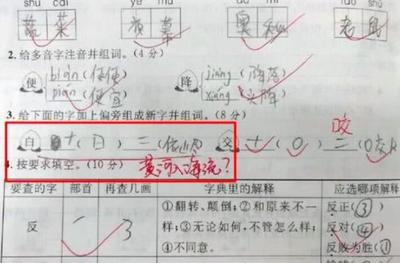 蔬 菜 老 鼠
2.给多音字注音并组词。(4分)
便 biàn (便便) 降 jiàng (降落)
pián (便宜) xiáng
3.给下面的字加上偏旁组成新字并组词。(8分)
咬
白 + (日) = (依山尽) 交 + (口) =
黄河入海流?
4.按要求填空。(10分)
要查的字 部首 再查几画 字典里的解释 应选哪项解释
反 又 3 ①翻转、颠倒;②和原来不一 反正(③)
样;③无论如何,不管怎么样; 反对(④)
④不同意。 反败为胜(①)